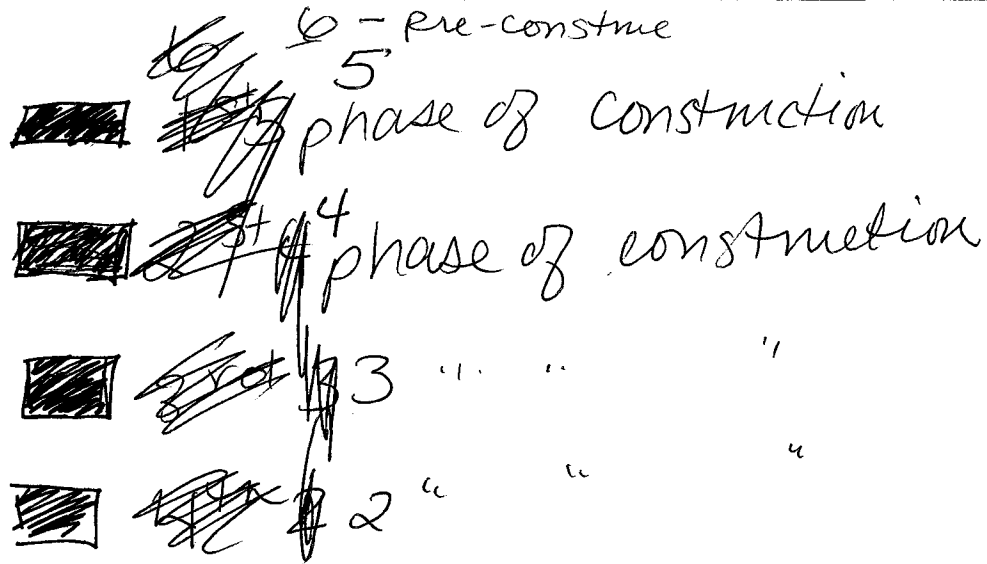 6 - pre-construc
5
phase of construction
4
phase of construction
3 " " "
2 " " "